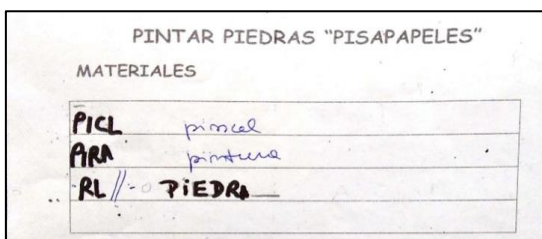 PINTAR PIEDRAS "PISAPAPELES"
MATERIALES
PICL pinscel
ARA pintura
RL//-o PIEDRA